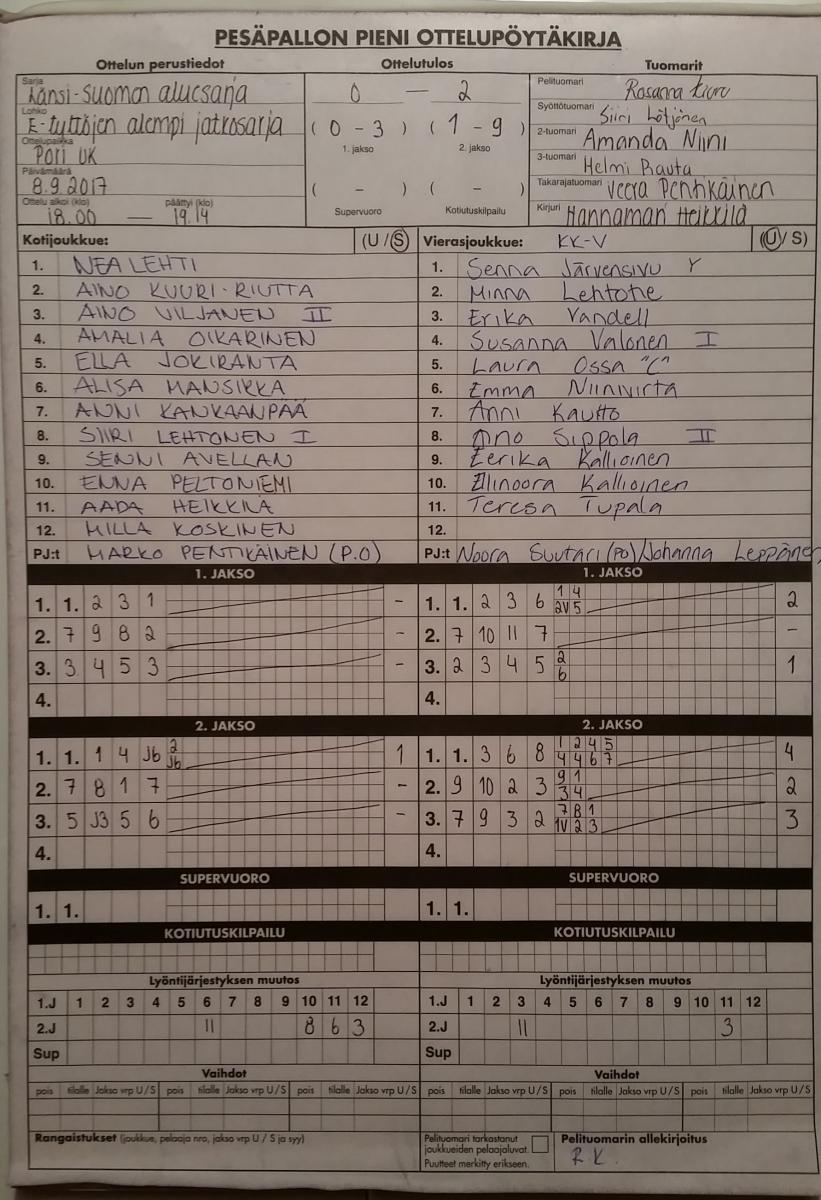 PESÄPALLON PIENI OTTELUPÖYTÄKIRJA
Ottelun perustiedot Ottelutulos Tuomarit
Sarja Länsi-Suomen aluesarja
Lohko E-tyttöjen alempi jatkosarja
Ottelupaikka Pori UK
Päivämäärä 8.9.2017
Ottelu alkoi (klo) päättyi (klo)
18.00 — 19.14
0 — 2
( 0 - 3 ) ( 1 - 9 )
1. jakso 2. jakso
( - ) ( - )
Supervuoro Kotiutuskilpailu
Pelituomari Rosanna
Syöttötuomari Siiri Lötjönen
2-tuomari Amanda Niini
3-tuomari Helmi Rauta
Takarajatuomari Veera Pentikäinen
Kirjuri Hannamari Heikkilä
Kotijoukkue: (U / S)
1. NEA LEHTI
2. AINO KUURI-RIUTTA
3. AINO VILJANEN II
4. AMALIA OIKARINEN
5. ELLA JOKIRANTA
6. ALISA MANSIKKA
7. ANNI KANKAANPÄÄ
8. SIIRI LEHTONEN I
9. SENNI AVELLAN
10. ENNA PELTONIEMI
11. AADA HEIKKILÄ
12. MILLA KOSKINEN
PJ:t MARKO PENTIKÄINEN (P.O)
Vierasjoukkue: KK-V (U / S)
1. Senna Järvensivu Y
2. Minna Lehtone
3. Erika Vandell
4. Susanna Valonen I
5. Laura Ossa "C"
6. Emma Niinivirta
7. Anni Kautto
8. Aino Sippola II
9. Eerika Kallioinen
10. Elinoora Kallioinen
11. Teresa Tupala
12.
PJ:t Noora Suutari (PO) / Johanna Leppänen
1. JAKSO
1. 1. 2 3 1 -
2. 7 9 8 2 -
3. 3 4 5 3 -
4.
1. JAKSO
1. 1. 2 3 6 1 4 2
2V 5
2. 7 10 11 7 -
3. 2 3 4 5 2 1
6
4.
2. JAKSO
1. 1. 1 4 J6 2 1
J6
2. 7 8 1 7 -
3. 5 J3 5 6 -
4.
2. JAKSO
1. 1. 3 6 8 1 2 4 5 4
4 4 6 7
2. 9 10 2 3 9 1 2
3 4
3. 7 9 3 2 7 8 1 3
1V 2 3
4.
SUPERVUORO SUPERVUORO
1. 1. 1. 1.
KOTIUTUSKILPAILU KOTIUTUSKILPAILU
Lyöntijärjestyksen muutos
1.J 1 2 3 4 5 6 7 8 9 10 11 12
2.J 11 8 6 3
Sup
Lyöntijärjestyksen muutos
1.J 1 2 3 4 5 6 7 8 9 10 11 12
2.J 11 3
Sup
Vaihdot Vaihdot
pois tilalle Jakso vrp U / S pois tilalle Jakso vrp U / S pois tilalle Jakso vrp U / S
pois tilalle Jakso vrp U / S pois tilalle Jakso vrp U / S pois tilalle Jakso vrp U / S
Rangaistukset (joukkue, pelaaja nro, jakso vrp U / S ja syy)
Pelituomari tarkastanut
joukkueiden pelaajaluvat.
Puutteet merkitty erikseen.
Pelituomarin allekirjoitus
R K.